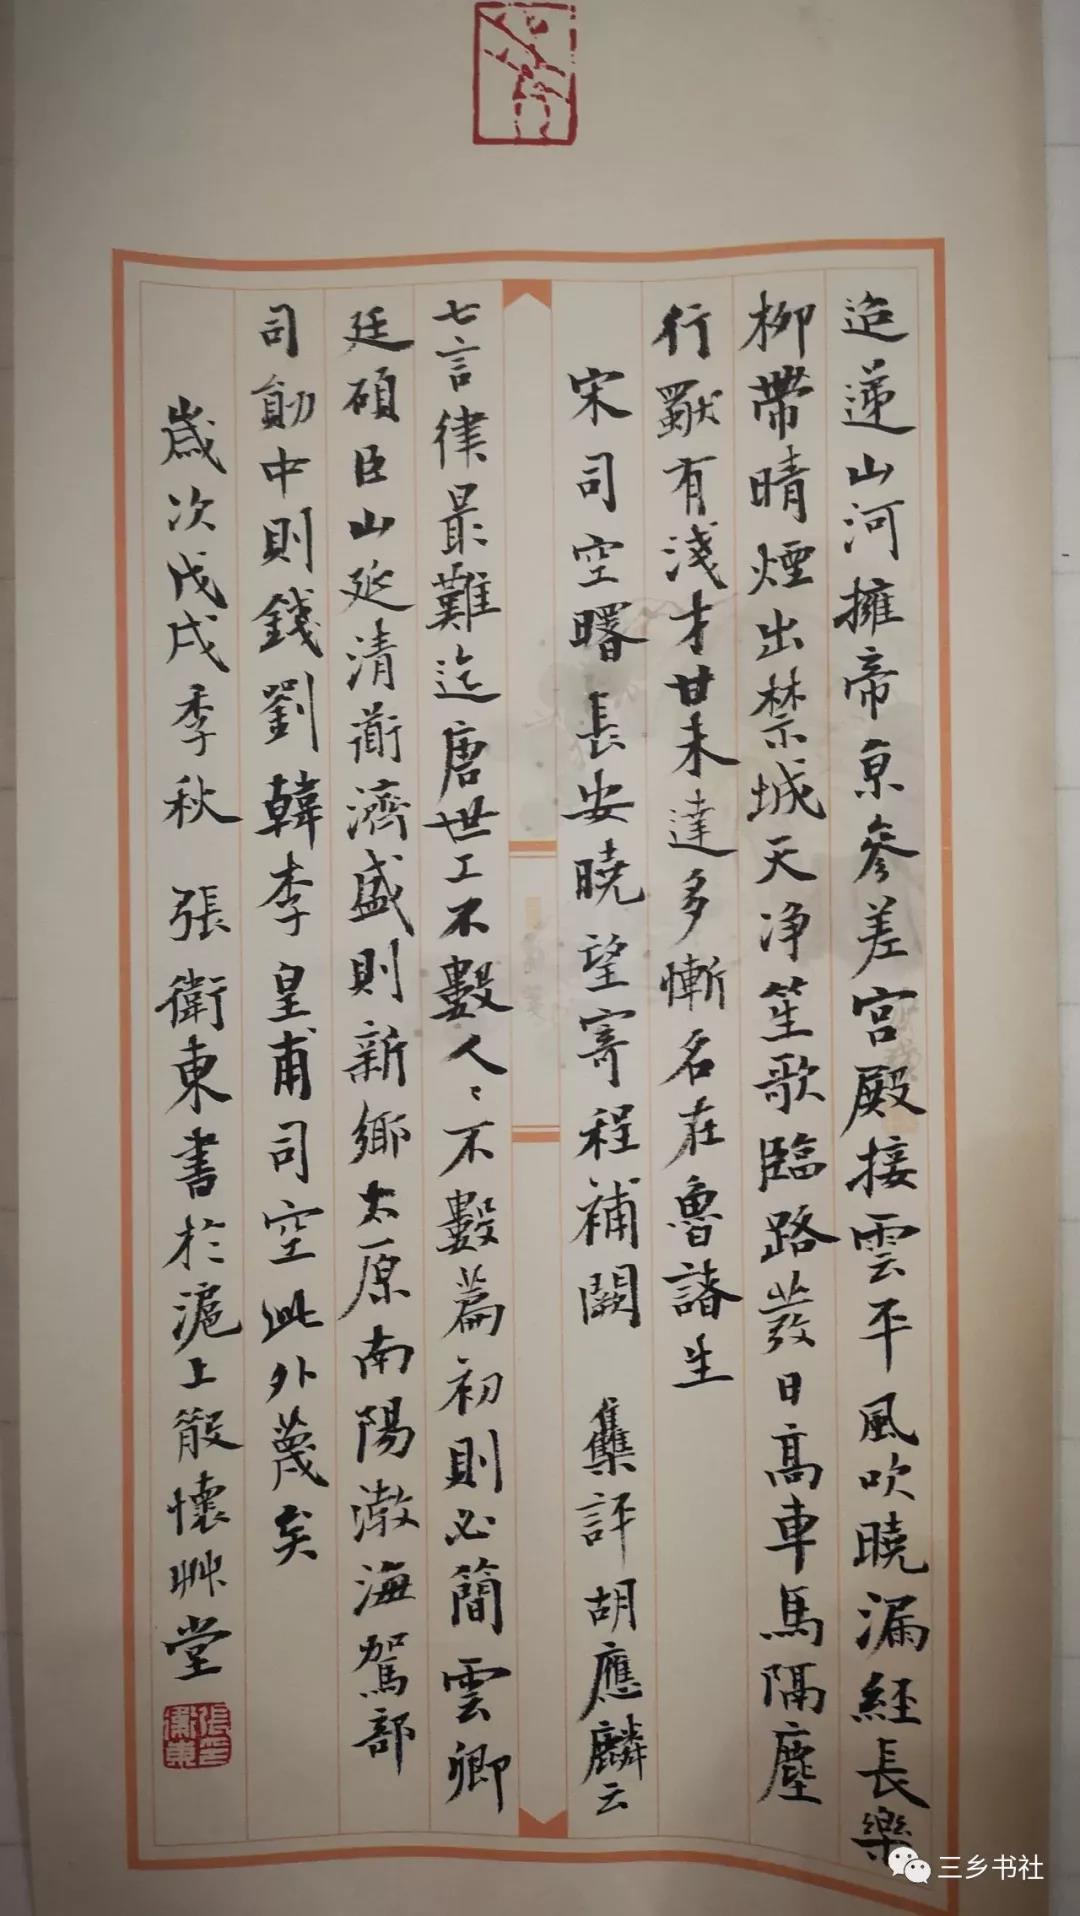 迨遞山河擁帝京參差宮殿接雲平風吹曉漏經長樂
柳帶晴煙出禁城天净笙歌臨路發日高車馬隔塵
行獻有淺才甘未達多慚名在魯諸生
宋司空曙長安曉望寄程補闕 集評胡應麟云
七言律最難迄唐世工不數人〻不數篇初則必簡雲卿
廷碩臣山延清道濟盛則新鄉太原南陽渤海駕部
司勛中則錢劉韓李皇甫司空此外蔑矣
歲次戊戌季秋 張衛東書於滬上散懷艸堂
張衛東
三乡书社